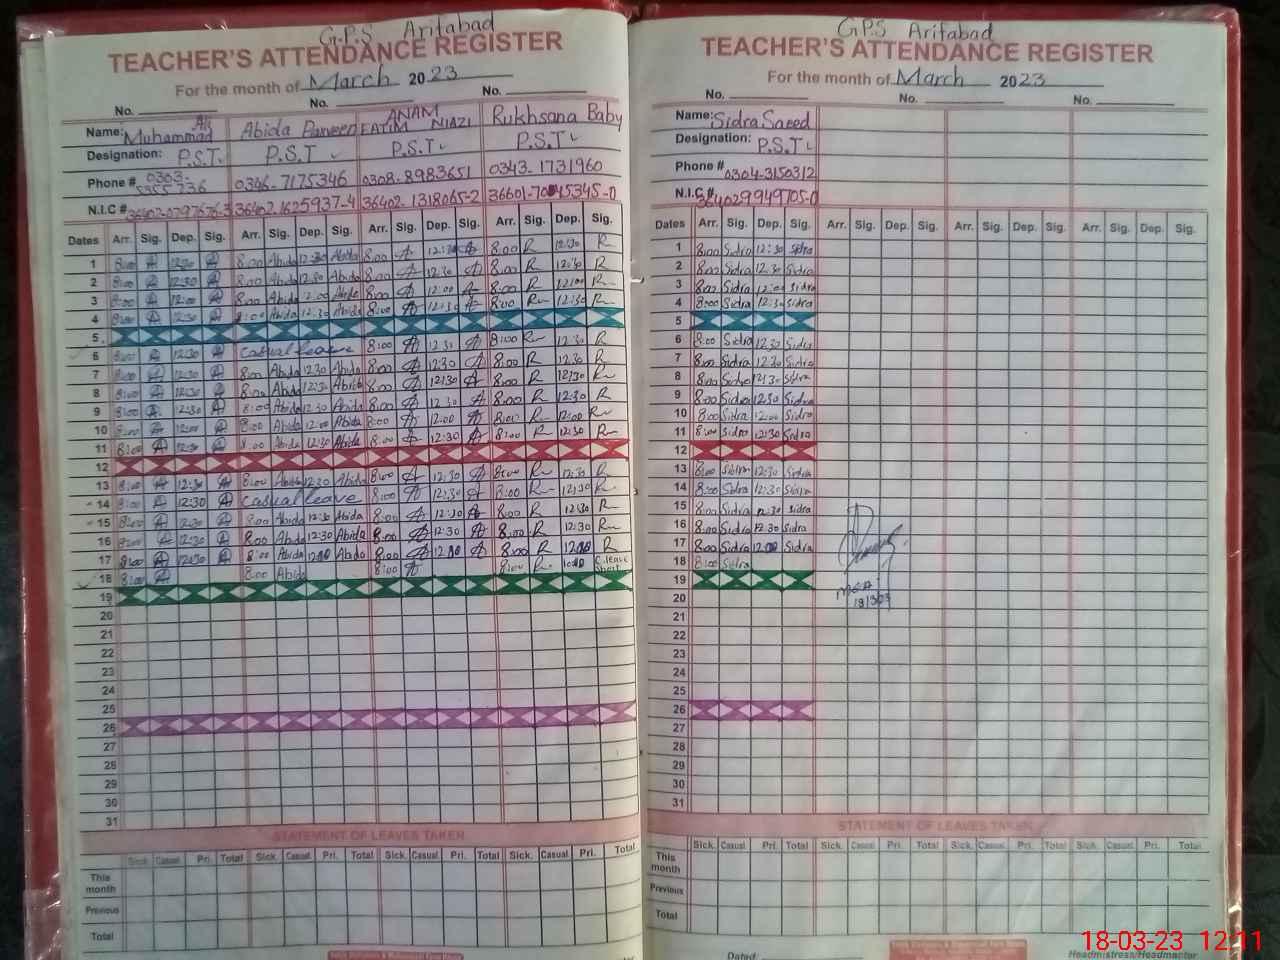 G.P.S Arifabad
TEACHER'S ATTENDANCE REGISTER
For the month of March 2023
No. No. No.
Name: Muhammad Ali Abida Parveen ANAM FATIM NIAZI Rukhsana Baby
Designation: P.S.T. P.S.T P.S.T P.S.T
Phone # 0303- 0346-7175346 0308-8983651 0343-1731960
N.I.C # 36402-1625937-4 36402-1318065-2
Dates Arr. Sig. Dep. Sig. Arr. Sig. Dep. Sig. Arr. Sig. Dep. Sig. Arr. Sig. Dep. Sig.
1 8:00 12:30 8:00 Abida 12:30 Abida 8:00 12:30 8:00 R 12:30 R
2 8:00 12:30 8:00 Abida 12:30 Abida 8:00 12:30 8:00 R 12:30 R
3 8:00 12:00 8:00 Abida 12:00 Abida 8:00 12:00 8:00 R 12:00 R
4 8:00 12:30 8:00 Abida 12:30 Abida 8:00 12:30 8:00 R 12:30 R
5
6 8:00 12:30 Casual leave 8:00 12:30 8:00 R 12:30 R
7 8:00 12:30 8:00 Abida 12:30 Abida 8:00 12:30 8:00 R 12:30 R
8 8:00 12:30 8:00 Abida 12:30 Abida 8:00 12:30 8:00 R 12:30 R
9 8:00 12:30 8:00 Abida 12:30 Abida 8:00 12:30 8:00 R 12:30 R
10 8:00 12:00 8:00 Abida 12:00 Abida 8:00 12:00 8:00 R 12:00 R
11 8:00 12:30 8:00 Abida 12:30 Abida 8:00 12:30 8:00 R 12:30 R
12
13 8:00 12:30 8:00 Abida 12:30 Abida 8:00 12:30 8:00 R 12:30 R
14 8:00 12:30 Casual leave 8:00 12:30 8:00 R 12:30 R
15 8:00 12:30 8:00 Abida 12:30 Abida 8:00 12:30 8:00 R 12:30 R
16 8:00 12:30 8:00 Abida 12:30 Abida 8:00 12:30 8:00 R 12:30 R
17 8:00 8:00 Abida 12:00 Abida 8:00 12:00 8:00 R 12:00 R
18 8:00 8:00 Abida 8:00 8:00 R C.leave Short
19
20
21
22
23
24
25
26
27
28
29
30
31
STATEMENT OF LEAVES TAKEN
Sick. Casual Pri. Total Sick. Casual Pri. Total Sick. Casual Pri. Total Sick. Casual Pri. Total
This month
Previous
Total
G.P.S Arifabad
TEACHER'S ATTENDANCE REGISTER
For the month of March 2023
No. No. No.
Name: Sidra Saeed
Designation: P.S.T
Phone # 0304-3150312
N.I.C # 364029949705-0
Dates Arr. Sig. Dep. Sig. Arr. Sig. Dep. Sig. Arr. Sig. Dep. Sig. Arr. Sig. Dep. Sig.
1 8:00 Sidra 12:30 Sidra
2 8:00 Sidra 12:30 Sidra
3 8:00 Sidra 12:00 Sidra
4 8:00 Sidra 12:30 Sidra
5
6 8:00 Sidra 12:30 Sidra
7 8:00 Sidra 12:30 Sidra
8 8:00 Sidra 12:30 Sidra
9 8:00 Sidra 12:30 Sidra
10 8:00 Sidra 12:00 Sidra
11 8:00 Sidra 12:30 Sidra
12
13 8:00 Sidra 12:30 Sidra
14 8:00 Sidra 12:30 Sidra
15 8:00 Sidra 12:30 Sidra
16 8:00 Sidra 12:30 Sidra
17 8:00 Sidra 12:00 Sidra
18 8:00 Sidra
19
20
21
22
23
24
25
26
27
28
29
30
31
STATEMENT OF LEAVES TAKEN
Sick. Casual Pri. Total Sick. Casual Pri. Total Sick. Casual Pri. Total Sick. Casual Pri. Total
This month
Previous
Total
Dated: Headmistress/Headmaster
18-03-23 12:11